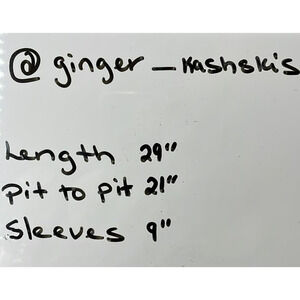 @ginger_kashski's
Length 29"
pit to pit 21"
Sleeves 9"